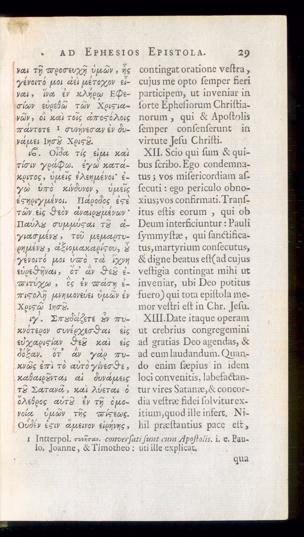 AD EPHESIOS EPISTOLA. 29
ναι τῇ προσευχῇ ὑμῶν, ἧς
γένοιτό μοι ἀεὶ μέτοχον εἶ-
ναι, ἵνα ἐν κλήρῳ Ἐφε-
σίων εὑρεθῶ τῶν Χριστια-
νῶν, οἳ καὶ τοῖς ἀποστόλοις
πάντοτε 1 συνῄνεσαν ἐν δυ-
νάμει Ἰησοῦ Χριστοῦ.
ιβ. Οἶδα τίς εἰμι καὶ
τίσιν γράφω. ἐγὼ κατά-
κριτος, ὑμεῖς ἐλεημένοι· ἐ-
γὼ ὑπὸ κίνδυνον, ὑμεῖς
ἐστηριγμένοι. Πάροδός ἐστε
τῶν εἰς Θεὸν ἀναιρουμένων·
Παύλου συμμύσται τοῦ ἡ-
γιασμένου, τοῦ μεμαρτυ-
ρημένου, ἀξιομακαρίστου, οὗ
γένοιτό μοι ὑπὸ τὰ ἴχνη
εὑρεθῆναι, ὅτ᾽ ἂν Θεοῦ ἐ-
πιτύχω, ὃς ἐν πάσῃ ἐ-
πιστολῇ μνημονεύει ὑμῶν ἐν
Χριστῷ Ἰησοῦ.
ιγ. Σπουδάζετε οὖν πυ-
κνότερον συνέρχεσθαι εἰς
εὐχαριστίαν Θεοῦ καὶ εἰς
δόξαν. ὅτ᾽ ἂν γὰρ πυ-
κνῶς ἐπὶ τὸ αὐτὸ γίνεσθε,
καθαιροῦνται αἱ δυνάμεις
τοῦ Σατανᾶ, καὶ λύεται ὁ
ὄλεθρος αὐτοῦ ἐν τῇ ὁμο-
νοίᾳ ὑμῶν τῆς πίστεως.
Οὐδέν ἐστιν ἄμεινον εἰρήνης,
contingat oratione vestra,
cujus me opto semper fieri
participem, ut inveniar in
sorte Ephesiorum Christia-
norum, qui & Apostolis
semper consenserunt in
virtute Jesu Christi.
XII. Scio qui sum & qui-
bus scribo. Ego condemna-
tus; vos misericordiam as-
secuti: ego periculo obno-
xius; vos confirmati. Trans-
itus estis eorum, qui ob
Deum interficiuntur: Pauli
symmystæ, qui sanctifica-
tus, martyrium consecutus,
& digne beatus est (ad cujus
vestigia contingat mihi ut
inveniar, ubi Deo potitus
fuero) qui tota epistola me-
mor vestri est in Chr. Jesu.
XIII. Date itaque operam
ut crebrius congregemini
ad gratias Deo agendas, &
ad eum laudandum. Quan-
do enim sæpius in idem
loci convenitis, labefactan-
tur vires Satanæ, & concor-
dia vestræ fidei solvitur ex-
itium, quod ille infert. Ni-
hil præstantius pace est,
1 Intterpol. συνῆσαν. conversati sunt cum Apostolis. i. e. Pau-
lo, Joanne, & Timotheo: uti ille explicat.
qua